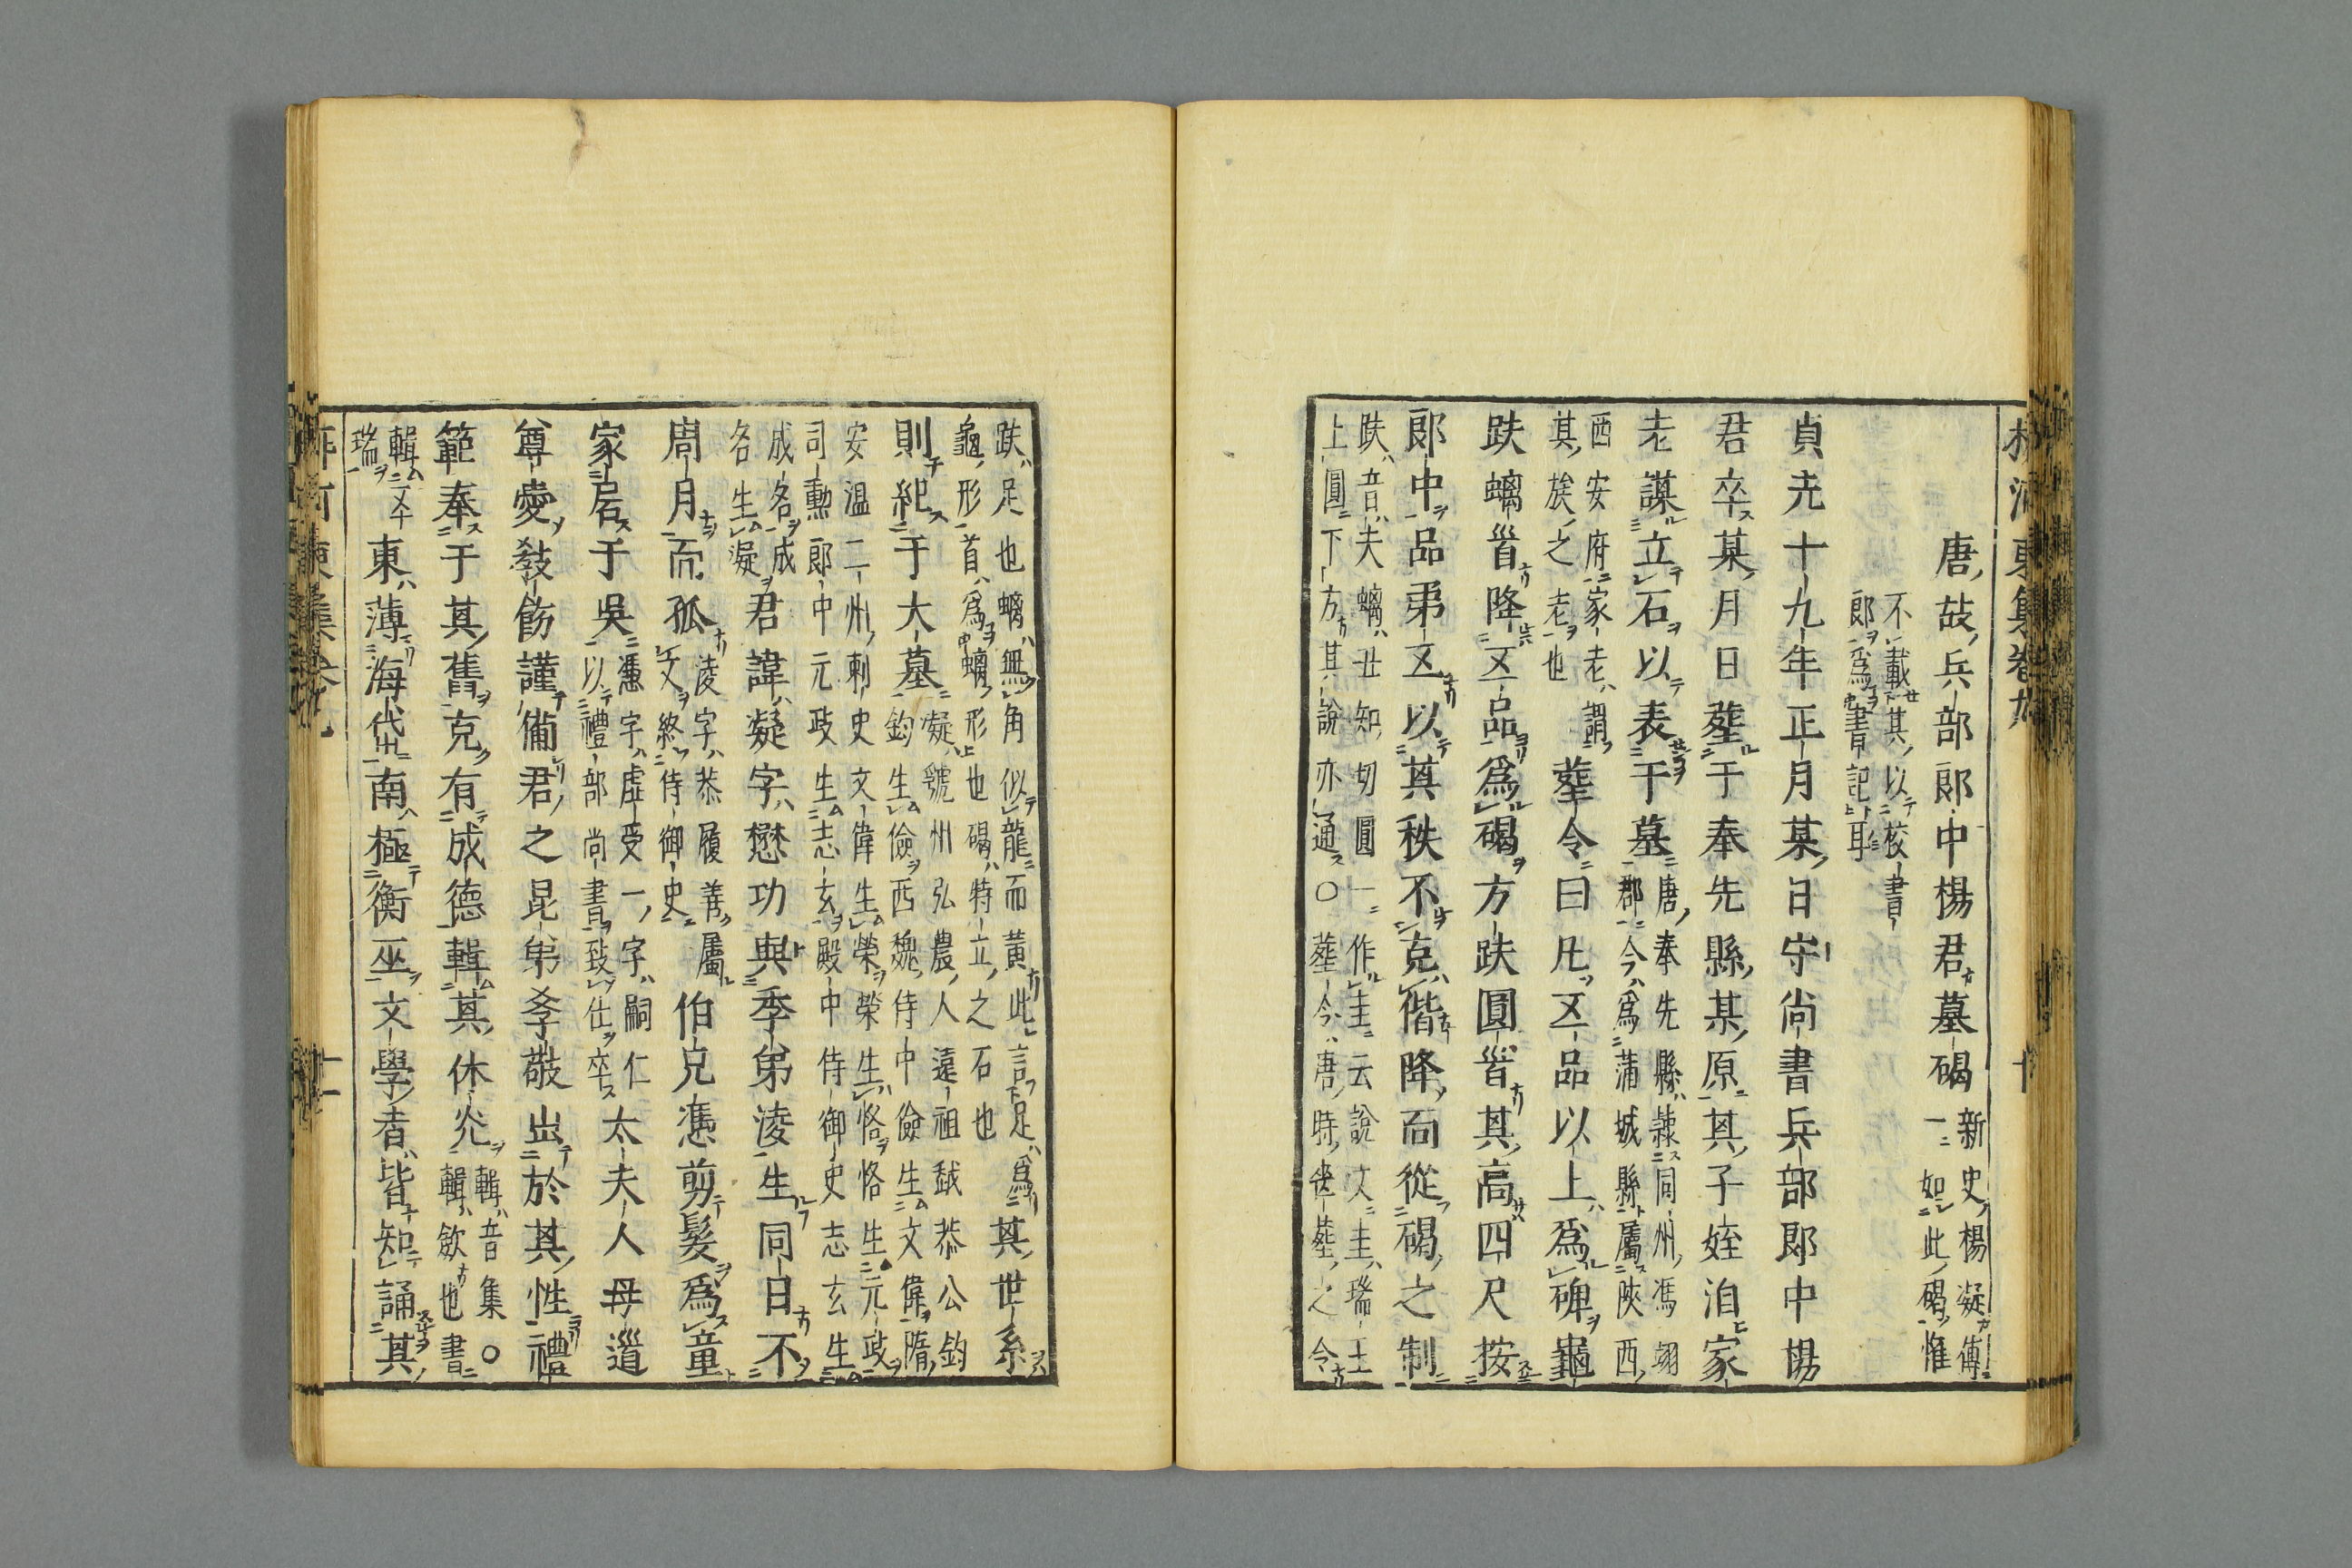 柳河東集卷九 十
唐故兵部郎中楊君墓碣
新史楊凝傳
一如此碣惟
不載其以校書
郎爲書記耳
貞元十九年正月某日守尚書兵部郎中楊
君卒某月日葬于奉先縣某原其子姪洎家
老謀立石以表于墓
唐奉先縣隷同州馮翊
郡今爲蒲城縣屬陝西
西安府家老謂
其族之老也
葬令曰凡五品以上爲碑龜
趺螭首降五品爲碣方趺圓首其高四尺按
郎中品第五以其秩不克偕降而從碣之制
趺音夫螭丑知切圓一作圭云說文圭瑞玉
上圓下方其說亦通○葬令唐時喪葬之令
趺足也螭無角似龍而黃此言足爲
龜形首爲螭形也碣特立之石也
其世系
則紀于大墓
凝虢州弘農人遠祖越恭公鈞
鈞生儉西魏侍中儉生文偉隋
安溫二州刺史文偉生榮榮生恪恪生元政
司勳郎中元政生志玄殿中侍御史志玄生
成名成
名生凝
君諱凝字懋功與季弟淩生同日不
周月而孤
淩字恭履善屬
文終侍御史
伯兄憑剪髮爲童
家居于吳
憑字虛受一字嗣仁
以禮部尚書致仕卒
太夫人母道
尊愛敎飭謹備君之昆弟孝敬出於其性禮
範奉于其舊克有成德輯其休光
輯音集○
輯斂也書
輯五
瑞
東薄海岱南極衡巫文學者皆知誦其
柳河東集卷九 十一